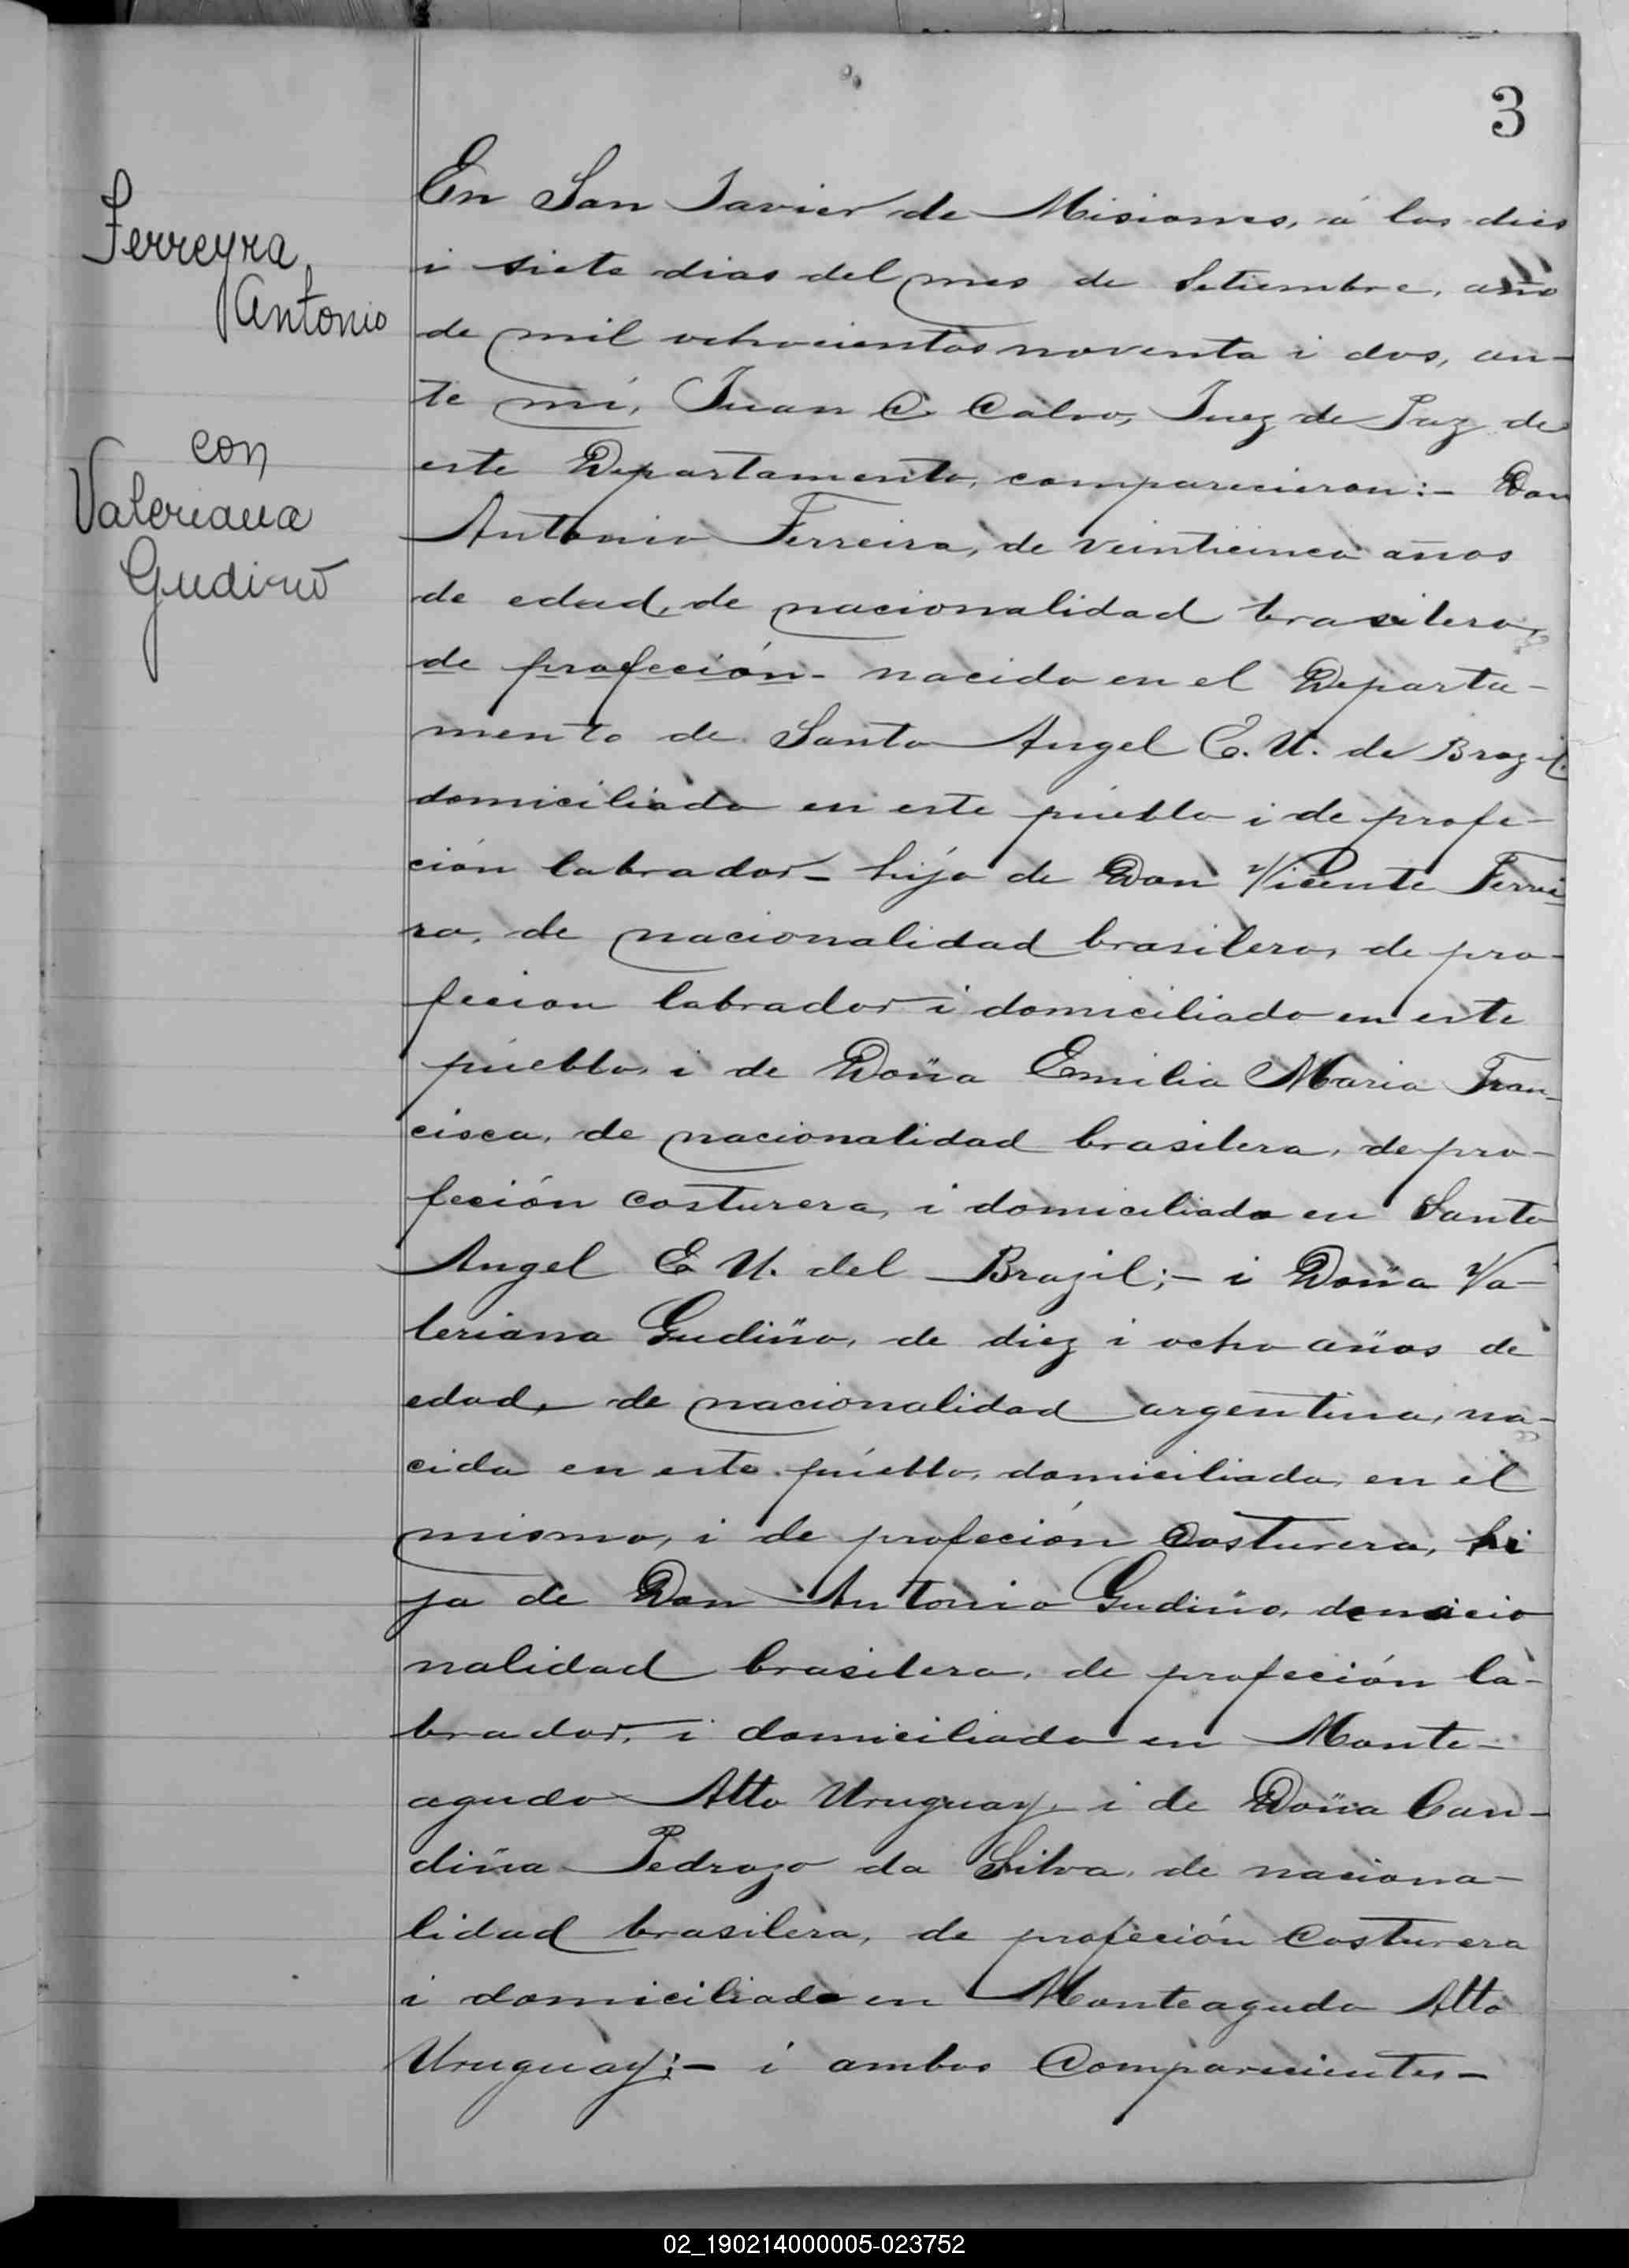 3
Ferreyra
Antonio
con
Valeriana
Gudiño
En San Javier de Misiones, á los dies
i siete dias del mes de Setiembre, año
de mil ochocientos noventa i dos, an-
te mí, Juan C. Calvo, Juez de Paz de
este Departamento, comparecieron:- Don
Antonio Ferreira, de veinticinco años
de edad, de nacionalidad brasilero,
de profeción- nacido en el Departa-
mento de Santo Angel E. U. de Brazil,
domiciliado en este pueblo i de profe-
ción labrador- hijo de Don Vicente Ferrei
ra, de nacionalidad brasilero, de pro-
fecion labrador i domiciliado en este
pueblo, i de Doña Emilia Maria Fran-
cisca, de nacionalidad brasilera, de pro-
feción costurera, i domiciliada en Santo
Angel E. U. del Brazil;- i Doña Va-
leriana Gudiño, de diez i ocho años de
edad, de nacionalidad argentina, na-
cida en este pueblo, domiciliada en el
mismo, i de profeción costurera, hi
ja de Don Antonio Gudiño, de nacio
nalidad brasilera, de profeción la-
brador, i domiciliado en Monte-
agudo Alto Uruguay, i de Doña Can-
diña Pedrozo da Silva, de naciona-
lidad brasilera, de profeción costurera
i domiciliada en Monteagudo Alto
Uruguay;- i ambos comparecientes-
02_190214000005-023752